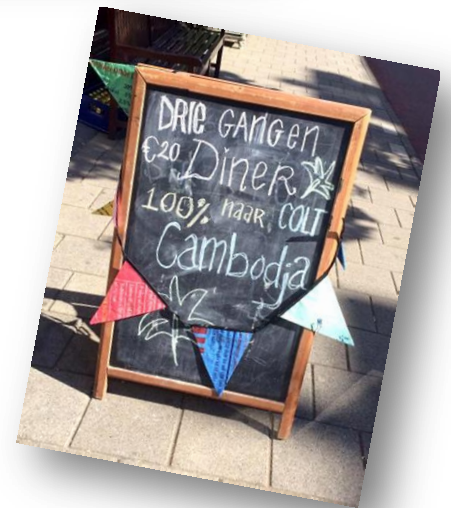 DRIE GANGEN
€20 DINER
100% naar COLT
Cambodja